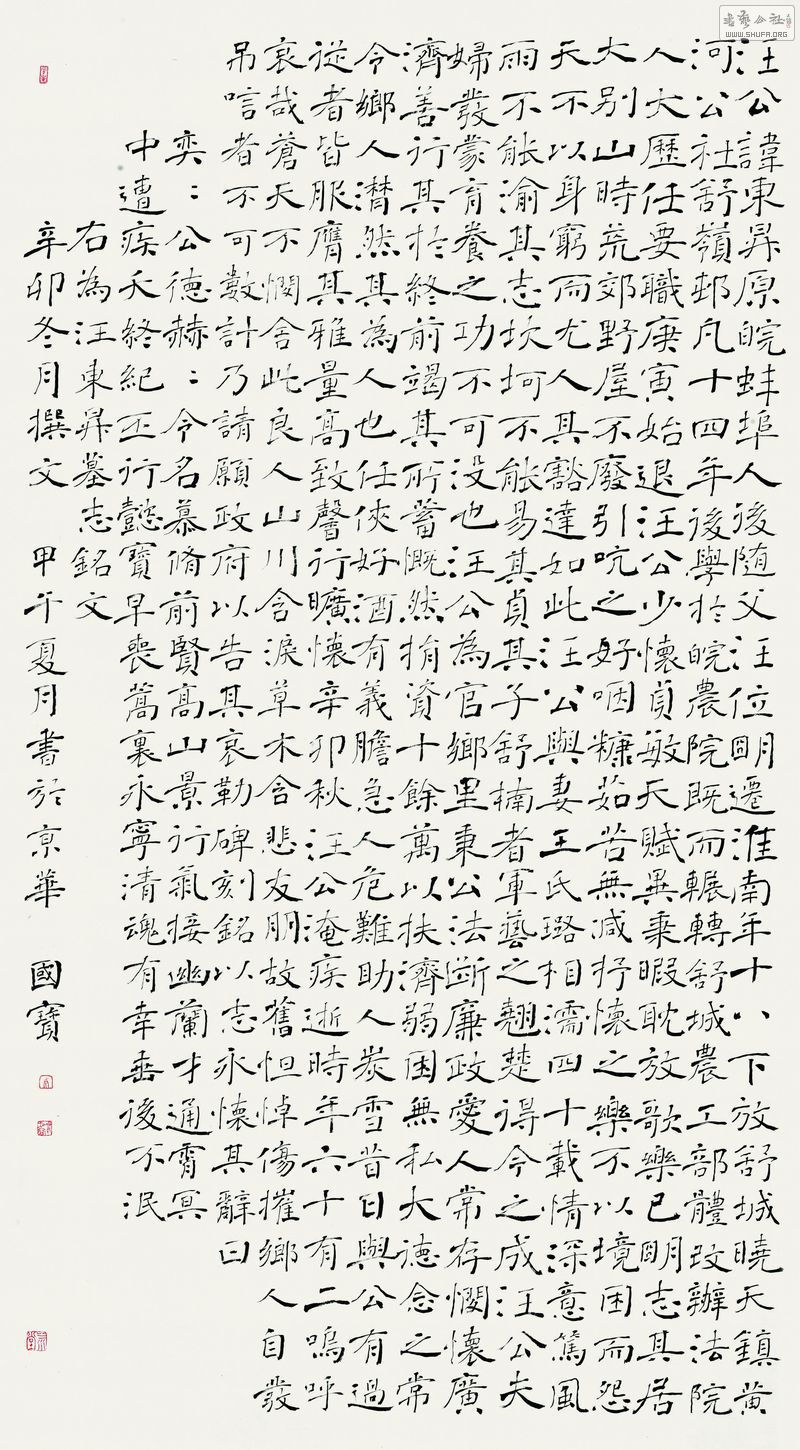 汪公諱東昇原皖蚌埠人後随父汪位明遷淮南年十八下放舒城曉天鎮黄
河公社舒嶺邨凡十四年後學於皖農院既而輾轉舒城農工部體改辦法院
人大歷任要職庚寅始退汪公少懷貞敏天賦異秉暇耽放歌樂已明志其居
大别山時荒郊野屋不廢引吭之好咽糠茹苦無减抒懷之樂不以境困而怨
天不以身窮而尤人其豁達如此汪公與妻王氏璐相濡四十載情深意篤風
雨不能渝其志坎坷不能易其貞其子舒楠者軍藝之翹楚得今之成汪公夫
婦發蒙育養之功不可没也汪公為官鄉里秉公法断廉政愛人常存憫懷廣
濟善行其於終前竭其所蓄慨然捐資十餘萬以扶濟弱困無私大德念之常
令鄉人潸然其為人也任俠好酒有義膽急人危難助人炭雪昔日與公有過
從者皆服膺其雅量高致馨行曠懷辛卯秋汪公淹疾逝時年六十有二嗚呼
哀哉蒼天不憫舍此良人山川含淚草木含悲友朋故舊怛悼傷摧鄉人自發
吊唁者不可數計乃請願政府以告其哀勒碑刻銘以志永懷其辭曰
奕：公德赫：令名慕脩前賢高山景行氣接幽蘭才通霄冥
中遭疾夭終紀丕行懿寶早喪蒿裏永寧清魂有幸垂後不泯
右為汪東昇墓志銘文
辛卯冬月撰文 甲午夏月書於京華 國寶
書藝公社
WWW.SHUFA.ORG